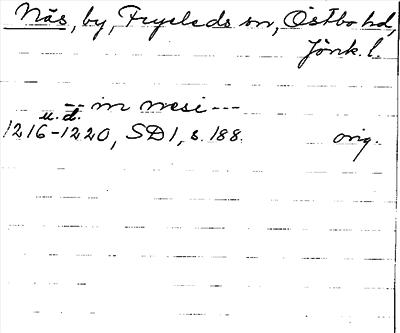 Näs, by, Fryeleds sn, Östbo hd,
Jönk. l.
-- in nesi ---
u.d.
1216-1220, SD1, s. 188. orig.